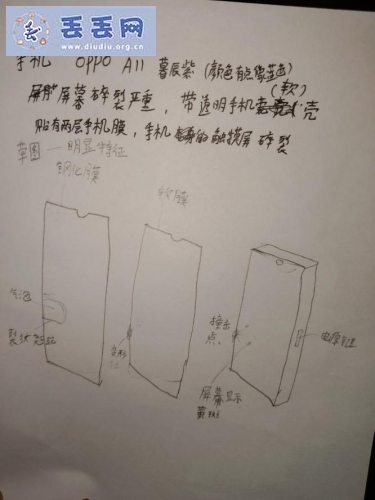 丢丢网
www.diudiu.org.cn
手机 OPPO A11 暮辰紫 (颜色有点像蓝色)
(软)
屏幕碎裂严重，带透明手机壳
贴有两层手机膜，手机的触摸屏碎裂
草图 — 明显特征
钢化膜
软膜
气泡
裂状
变形
撞击点
电源键
屏幕显示
黄斑